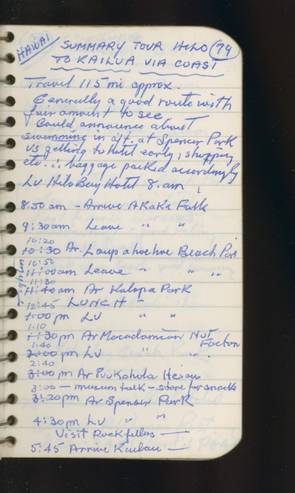 HAWAI
SUMMARY TOUR HILO (79)
TO KAILUA VIA COAST
Travel 115 mi approx.
Generally a good route with
fair amount to see
Could announce about
swimming in aft. at Spencer Park
vs getting to Hotel early, shopping
etc ∴ baggage packed accordingly
Lv Hilo Bay Hotel 8. am
8:50 am - Arrive AKaKa Falls
9:30 am Leave " "
10:20
10:30 Ar. Laupahoehoe Beach Park
10:50
11:00 am Leave " " "
11:30
11:40 am Ar Kalopa Park
12:45 LUNCH -
1:00 pm Lv " "
1:10
1:30 pm Ar Macadamian Nut Factory
1:40
2:00 pm Lv " "
2:40
3:00 pm Ar PuuKohola Heiau
3:00 - museum talk - store for snacks
3:20 pm Ar Spencer Park
4:30 pm Lv " "
Visit Rockfellers -
5:45 Arrive Kailua -